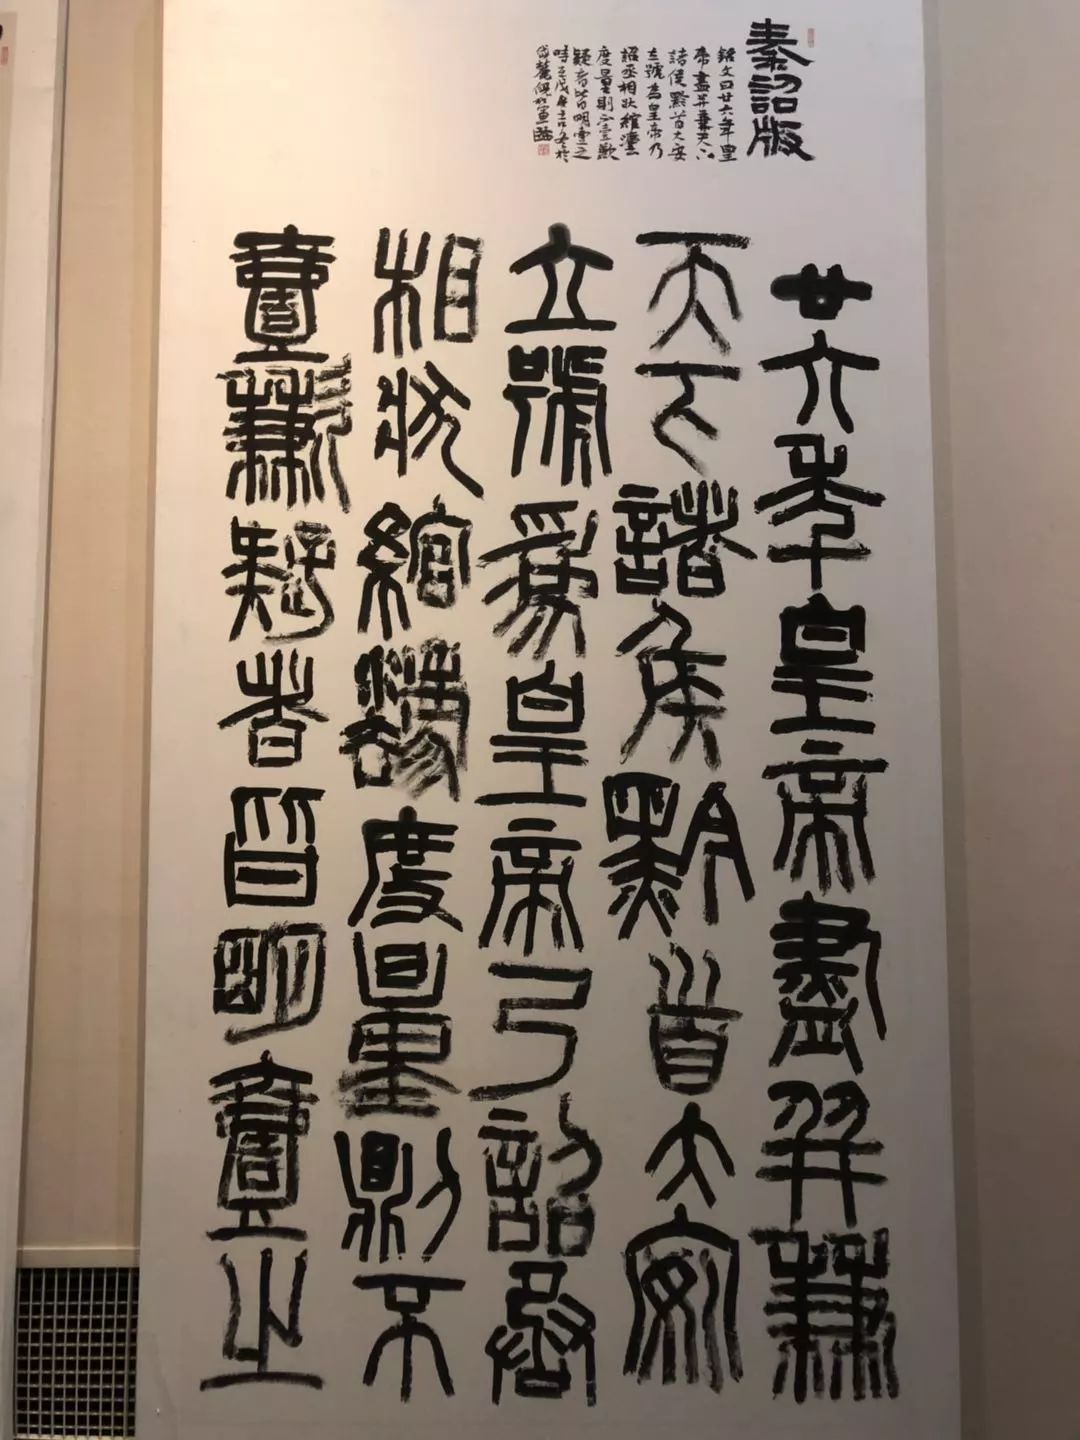 秦詔版
銘文曰廿六年皇
帝盡并兼天下
諸侯黔首大安
立號為皇帝乃
詔丞相狀綰灋
度量則不壹歉
疑者皆明壹之
時
臨
廿六年皇帝盡并兼
天下諸侯黔首大安
立號為皇帝乃詔丞
相狀綰灋度量則不
壹歉疑者皆明壹之